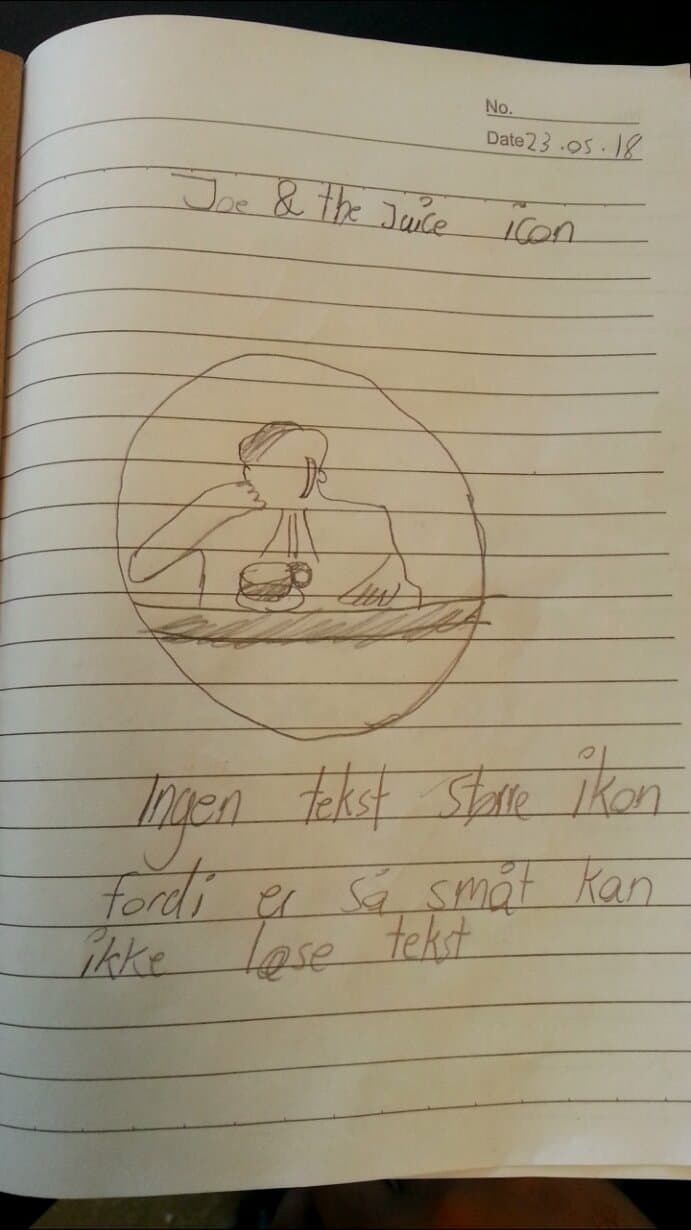 No.
Date 23.05.18
Joe & the Juice icon
Ingen tekst større ikon
fordi er så småt kan
ikke læse tekst